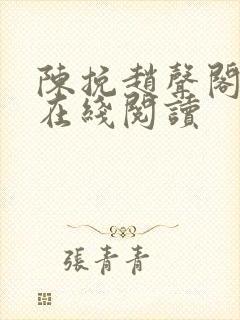 陳挽趙聲閣
在綫閱讀
張青青